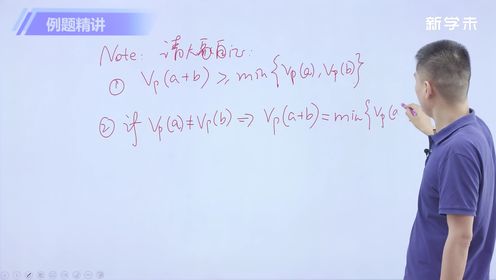 例题精讲
新学未
Note: 请大家自记:
① Vp(a+b) ≥ min{Vp(a), Vp(b)}
② if Vp(a) ≠ Vp(b) ⇒ Vp(a+b) = min{Vp(a